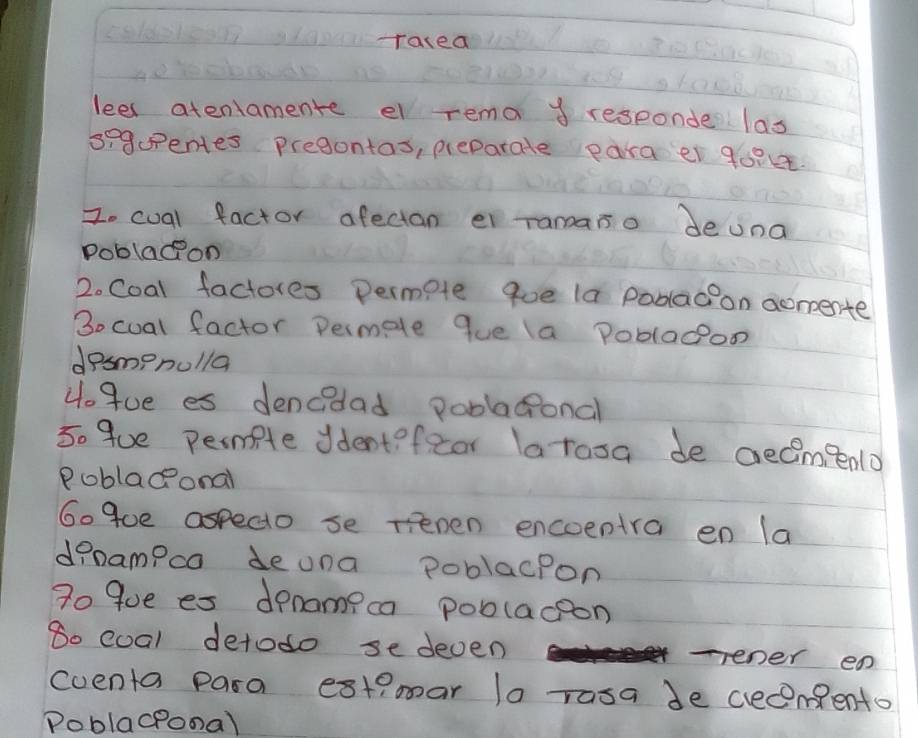 Tarea
lees atentamente el tema y responde las
siguientes pregontas, preparate para el qoiz.
1. cual factor afectan el tamaño de una
poblacion
2. Coal factores permite que la poblacion aomente
3. cual factor permete que la poblacion
desminulla
4. que es dencidad poblacional
5. que permite ydentificar la tasa de crecimiento
poblacional
6. que aspecto se tienen encoentra en la
dinamica de una poblacion
7. que es denamica poblacion
8. cual detodo se deven tener en
cuenta para estimar la tasa de crecimiento
poblacional